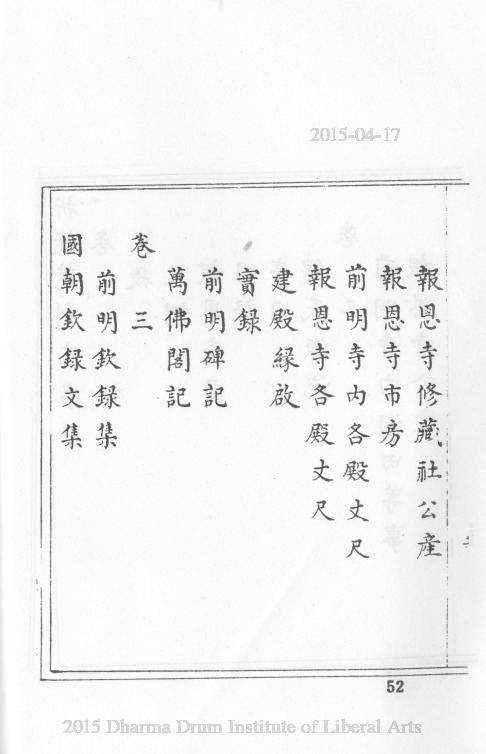 2015-04-17
報恩寺修藏社公產
報恩寺市房
前明寺內各殿丈尺
報恩寺各殿丈尺
建殿緣啟
實錄
前明碑記
萬佛閣記
卷三
前明欽錄集
國朝欽錄文集
52
2015 Dharma Drum Institute of Liberal Arts